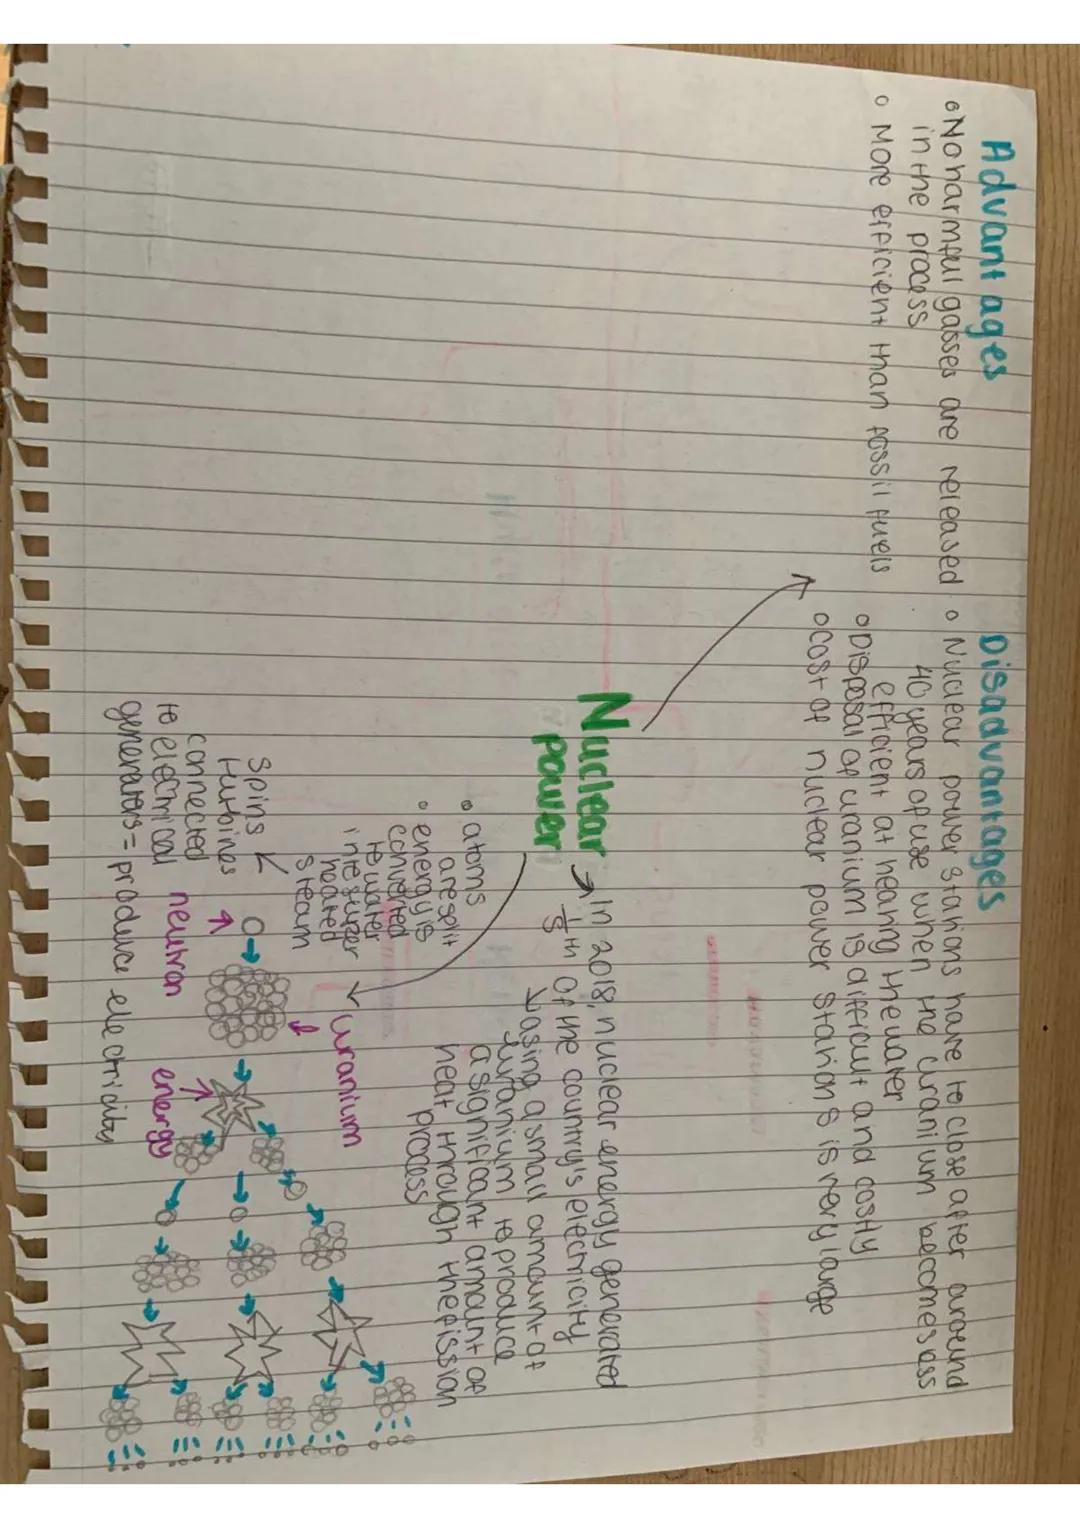 Advantages
No harmful gasses are released
in the process
More efficient than fossil fuels
Disadvantages
Nuclear power stations have to close after around
40 years of use when the uranium becomes less
efficient at heating the water
Disposal of uranium is difficult and costly
Cost of nuclear power stations is very large
Nuclear
power
In 2018, nuclear energy generated
1/5 th of the country's electricity
using a small amount of
uranium to produce
a significant amount of
heat through the fission
process
atoms
are split
energy is
converted
to water
into super
heated
steam
spins
turbines
connected
to electrical
generators = produce electricity
uranium
neutron
energy